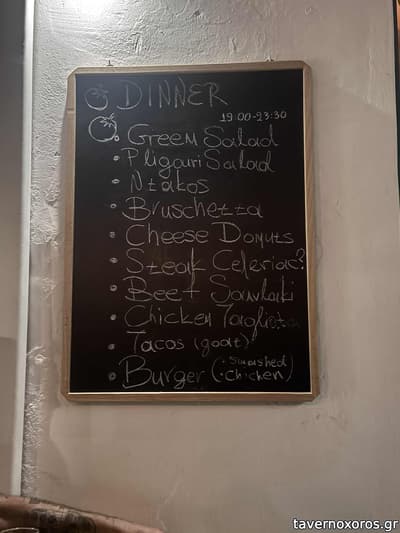 DINNER
19:00-23:30
• Green Salad
• Pligouri Salad
• Ntakos
• Bruschetta
• Cheese Donuts
• Steak Celeriac?
• Beef Souvlaki
• Chicken Tagliata
• Tacos (goat)
• Burger (• smashed
• chicken)
tavernoxoros.gr